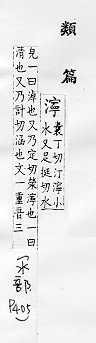 類篇
濘囊丁切汀濘小
水又足挺切水
皃一曰淖也又乃定切滎濘也一曰
清也又乃計切涵也文一重音三
(水部
P405)